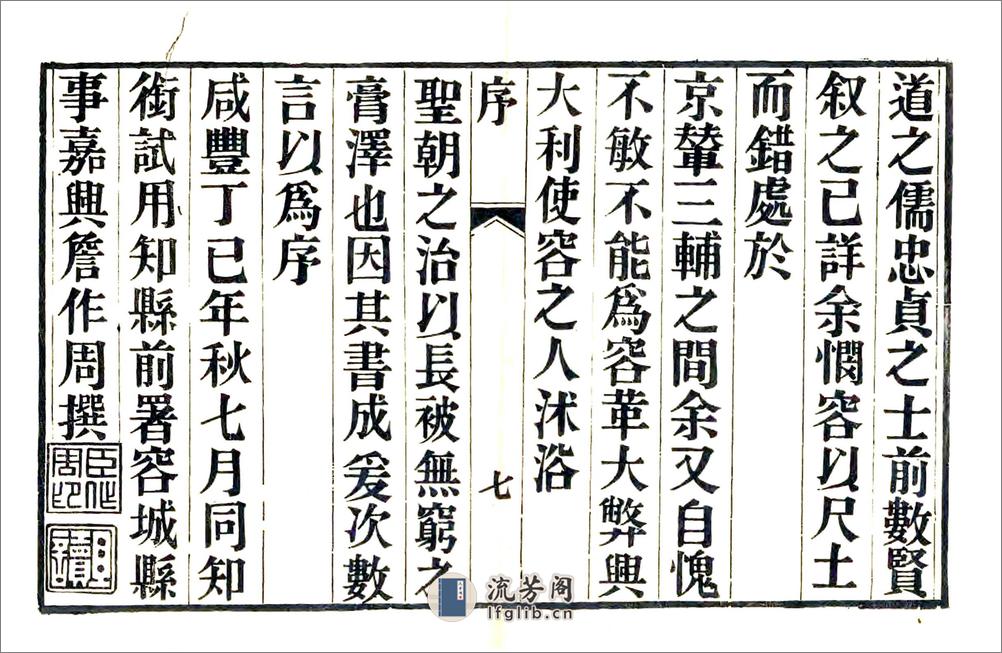 道之儒忠貞之士前數賢
叙之已詳余憫容以尺土
而錯處於
京輦三輔之間余又自愧
不敏不能爲容革大弊興
大利使容之人沭浴
序
七
聖朝之治以長被無窮之
膏澤也因其書成爰次數
言以爲序
咸豐丁巳年秋七月同知
銜試用知縣前署容城縣
事嘉興詹作周撰
臣作周印
流芳阁
lfglib.cn